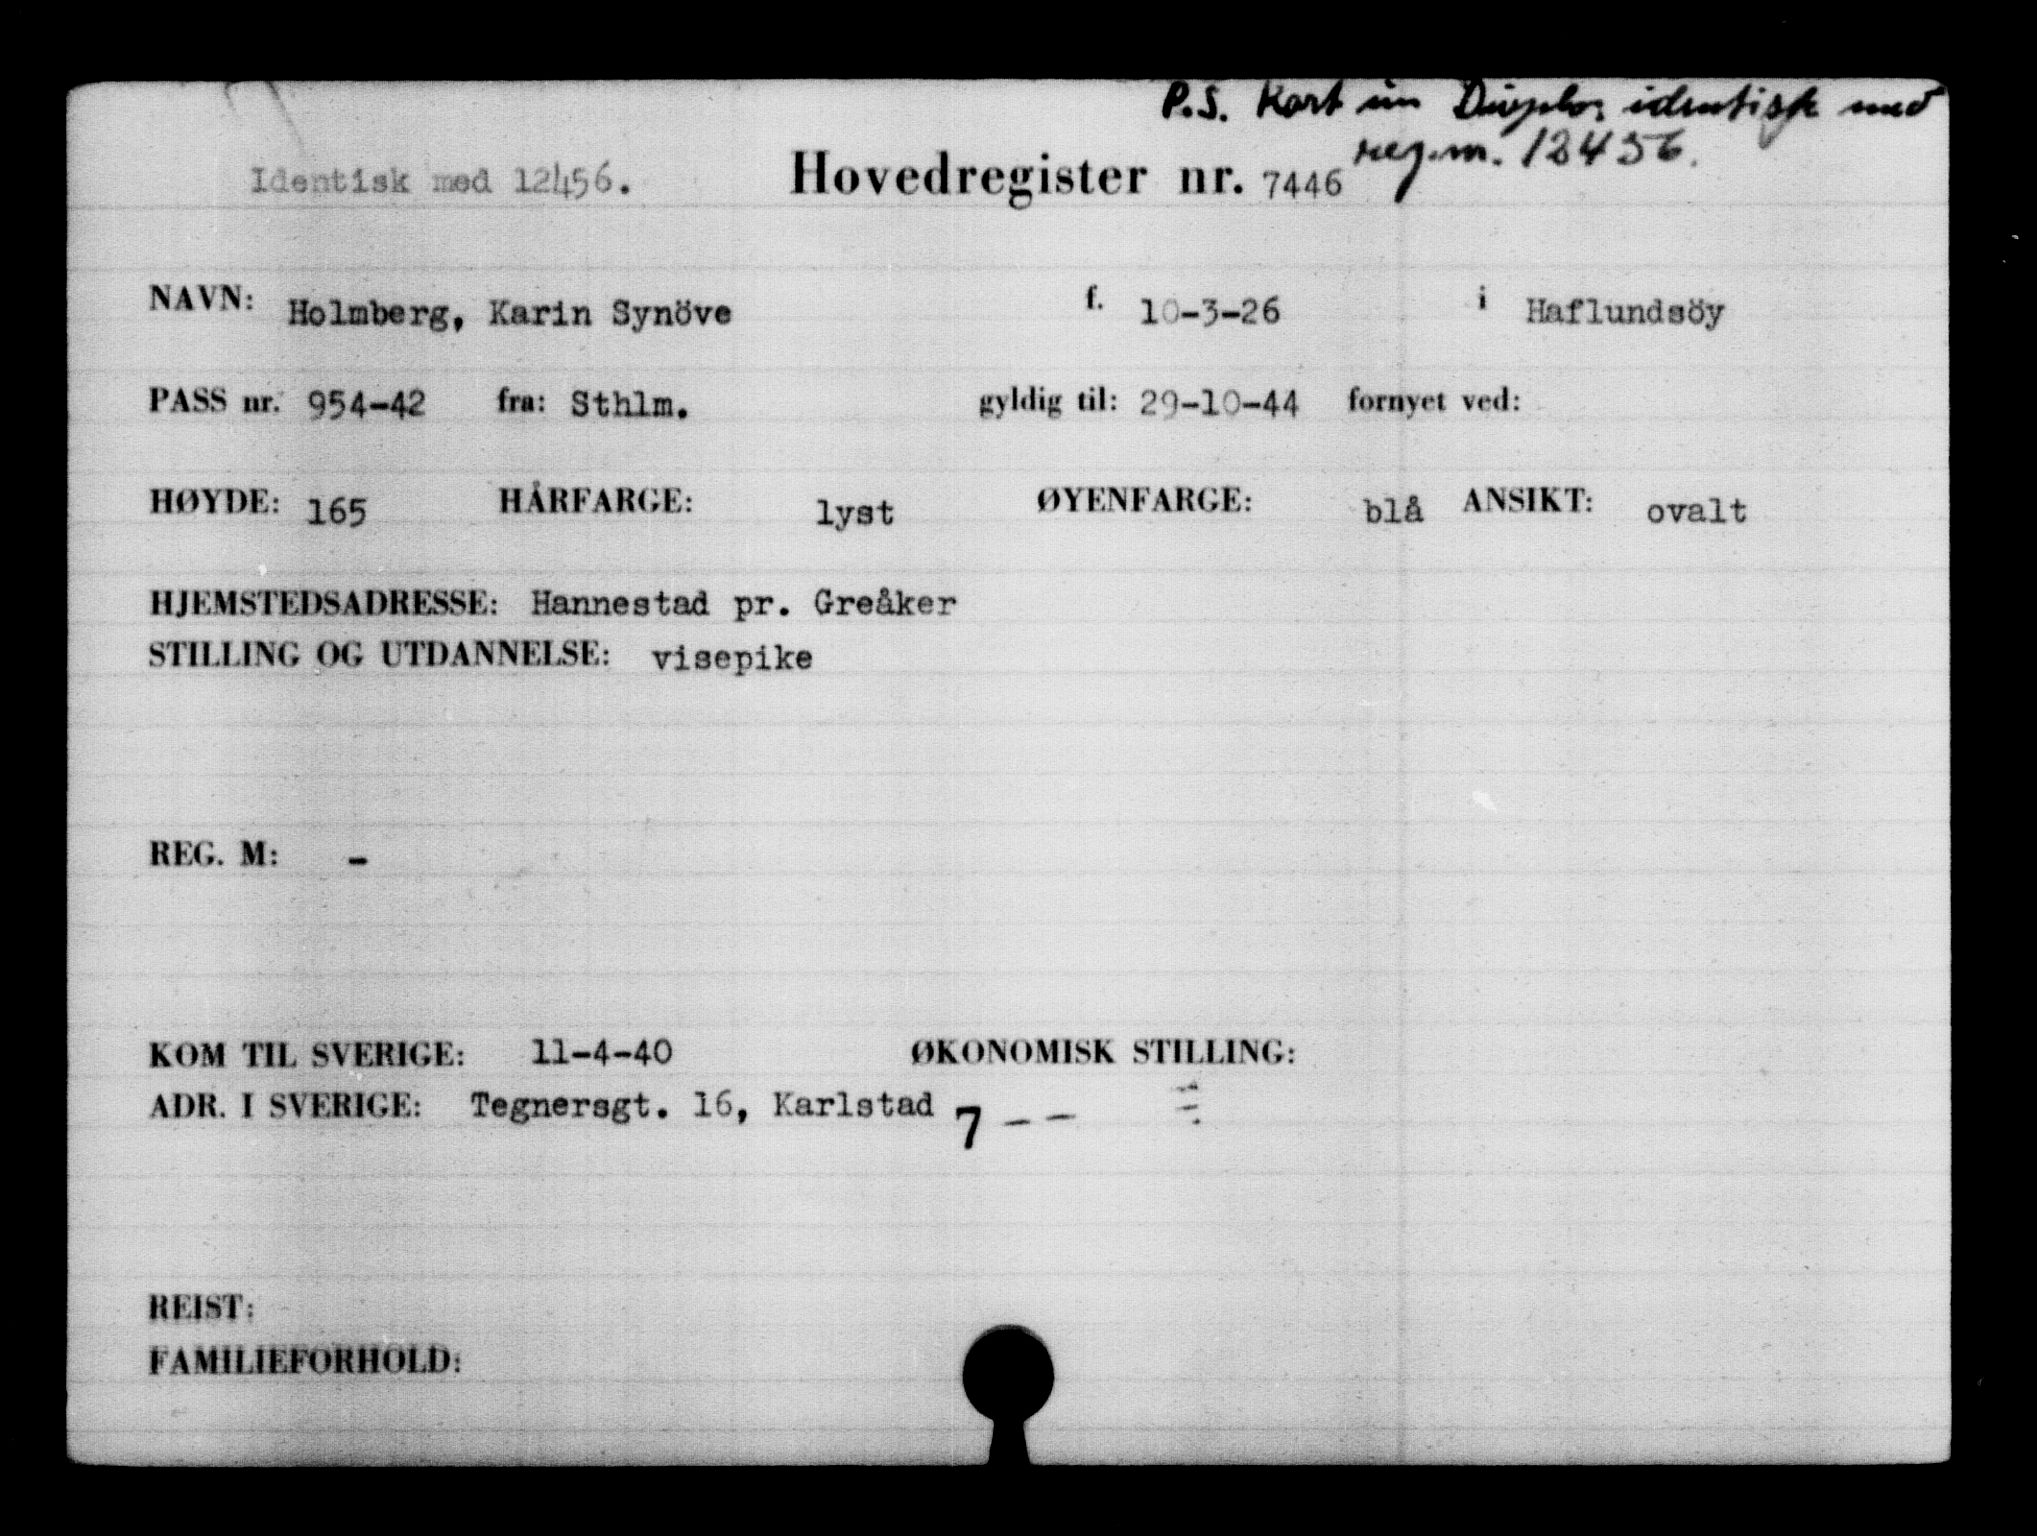 P.S. Kort identisk med
reg.nr. 12456.
Identisk med 12456. Hovedregister nr. 7446
NAVN: Holmberg, Karin Synöve f. 10-3-26 i Haflundsöy
PASS nr. 954-42 fra: Sthlm. gyldig til: 29-10-44 fornyet ved:
HØYDE: 165 HÅRFARGE: lyst ØYENFARGE: blå ANSIKT: ovalt
HJEMSTEDSADRESSE: Hannestad pr. Greåker
STILLING OG UTDANNELSE: visepike
REG. M: -
KOM TIL SVERIGE: 11-4-40 ØKONOMISK STILLING:
ADR. I SVERIGE: Tegnersgt. 16, Karlstad 7 - -
REIST:
FAMILIEFORHOLD: